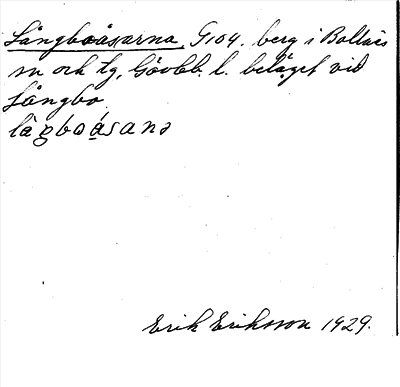 Långboåsarna, G104. berg i Bollnäs
sn och tg. Gävleb. l. beläget vid
Långbo.
làŋboásanə
Erik Eriksson 1929.